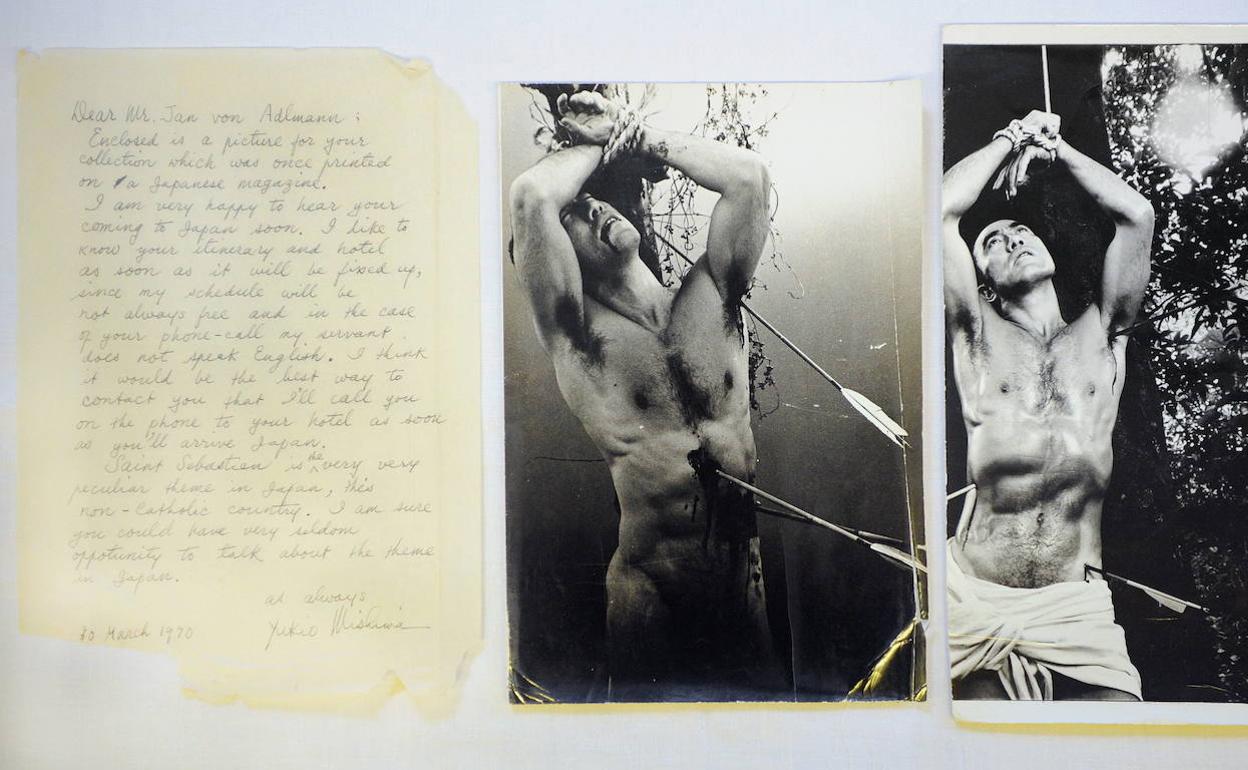 Dear Mr. Jan von Adlmann :
Enclosed is a picture for your
collection which was once printed
on a Japanese magazine.
I am very happy to hear your
coming to Japan soon. I like to
know your itinerary and hotel
as soon as it will be fixed up,
since my schedule will be
not always free and in the case
of your phone-call my servant
does not speak English. I think
it would be the best way to
contact you that I'll call you
on the phone to your hotel as soon
as you'll arrive Japan.
Saint Sebastien is the very very
peculiar theme in Japan, this
non-Catholic country. I am sure
you could have very seldom
oppotunity to talk about the theme
in Japan.
as always
30 March 1970 Yukio Mishima